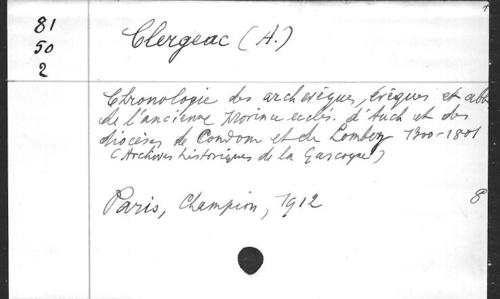 81
50
2
Clergeac (A.)
Chronologie des archevêques, évêques et abb
de l'ancienne province eccles. d'Auch et des
diocèses de Condom et de Lombez 1300-1801
(Archives historiques de la Gascogne)
Paris, Champion, 1912
8